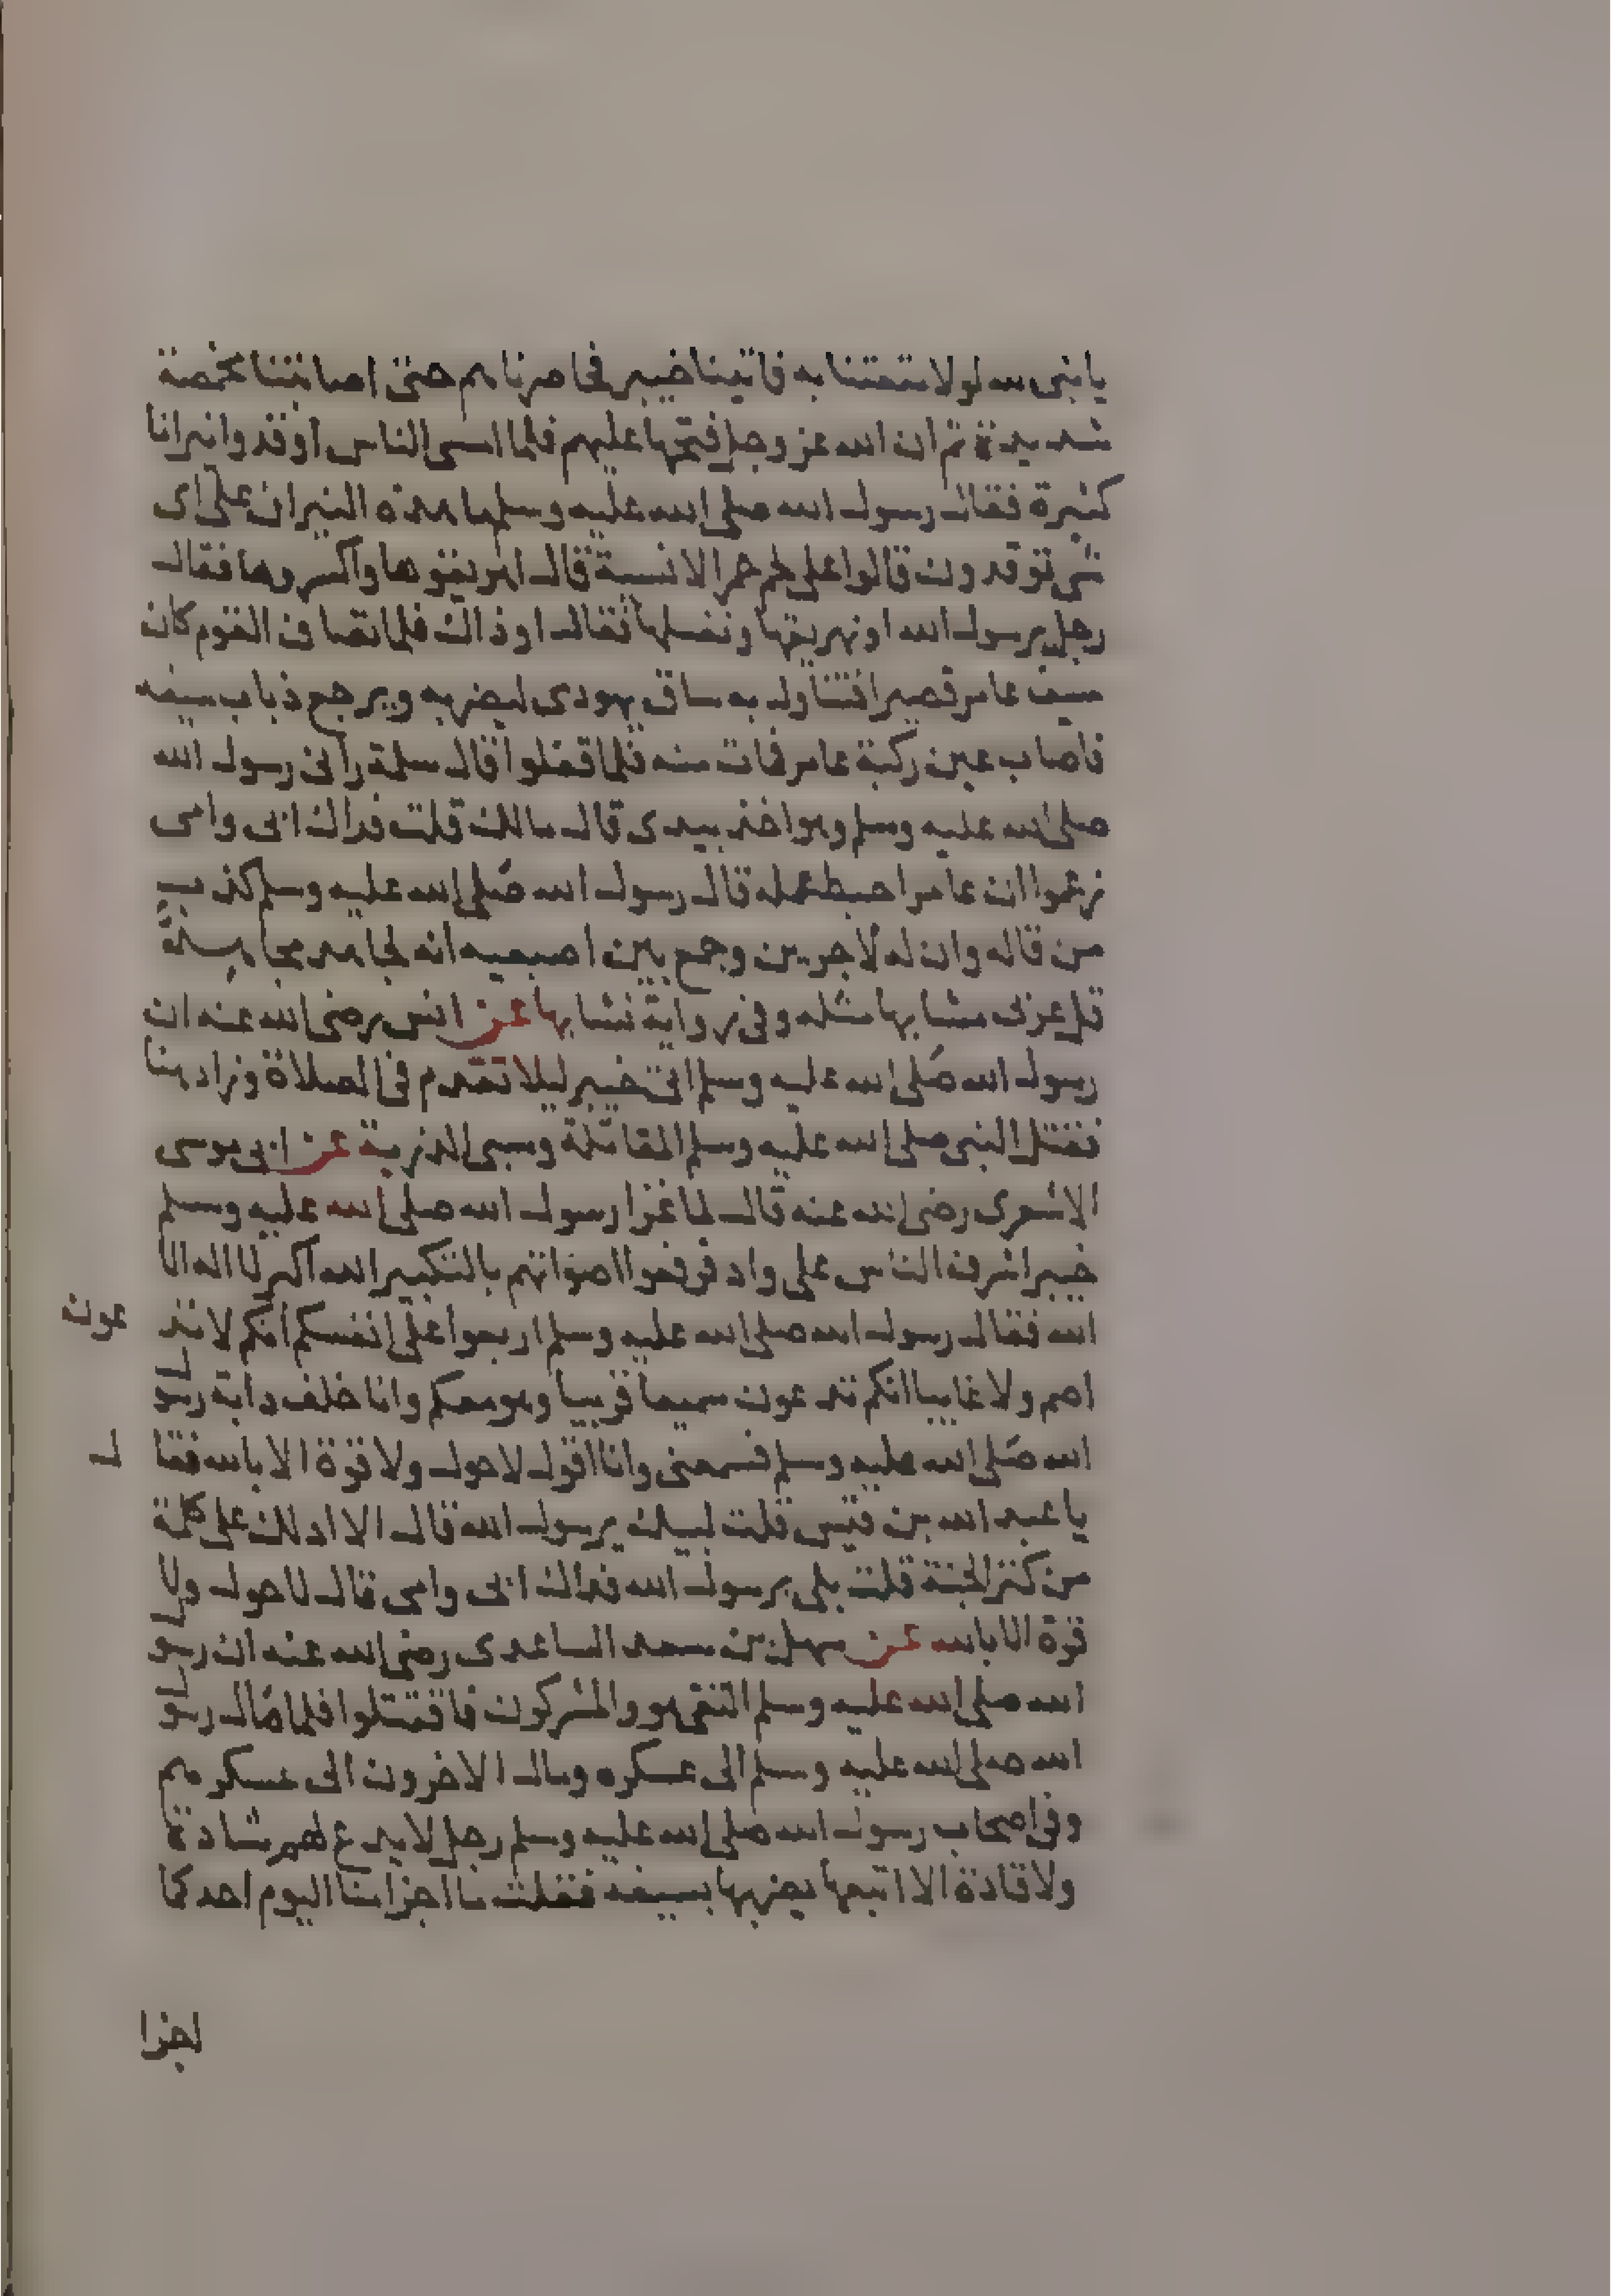 يا نبى الله لولا متعتنا به فاتينا خيبر فحاصرناهم حتى اصابتنا مخمصة
شديدة ثم ان الله عز وجل فتحها عليهم فلما امسى الناس أوقدوا نيرانا
كثيرة فقال رسول الله صلى الله عليه وسلم ما هذه النيران على اى
شى توقدون قالوا على لحم حمر الانسية قال اهريقوها واكسروها فقال
رجل يرسول الله او نهريقها ونغسلها فقال او ذاك فلما تصاف القوم كان
سيف عامر قصيرا فتناول به ساق يهودى ليضربه ويرجع ذباب سيفه
فاصاب عين ركبة عامر فمات منه فلما قفلوا قال سلمة رأنى رسول الله
صلى الله عليه وسلم وهو اخذ بيدى قال مالك قلت فداك ابى وامى
زعموا ان عامرا حبط عمله قال رسول الله صلى الله عليه وسلم كذب
من قاله وان له لاجرين وجمع بين اصبعيه انه لجاهد مجاهد
قل عربى مشابها مثله وفى رواية نشا بها عن انس رضى الله عنه ان
رسول الله صلى الله عليه وسلم اتى خيبر ليلا تقدم فى الصلاة وزاد هنا
فقتل النبى صلى الله عليه وسلم المقاتلة وسبى الذرية عن ابى موسى
الاشعرى رضى الله عنه قال لما غزا رسول الله صلى الله عليه وسلم
خيبر اشرف الناس على واد فرفعوا اصواتهم بالتكبير الله اكبر لا اله الا
الله فقال رسول الله صلى الله عليه وسلم اربعوا على انفسكم انكم لا تد
عون
اصم ولا غايبا انكم تدعون سميعا قريبا وهو معكم وانا خلف دابة رسول
الله صلى الله عليه وسلم فسمعنى وانا اقول لا حول ولا قوة الا بالله فقا
ل
يا عبد الله بن قيس قلت لبيك يرسول الله قال الا ادلك على كلمة
من كنز الجنة قلت بلى يرسول الله فداك ابى وامى قال لا حول ولا
قوة الا بالله عن سهل بن سعد الساعدى رضى الله عنه ان رسول
الله صلى الله عليه وسلم التقى هو والمشركون فاقتتلوا فلما مال رسول
الله صلى الله عليه وسلم الى عسكره ومال الاخرون الى عسكرهم
وفى اصحاب رسول الله صلى الله عليه وسلم رجل لا يدع لهم شاذة
ولا فاذة الا اتبعها يضربها بسيفه فقلت ما اجزا منا اليوم احد كما
اجزا